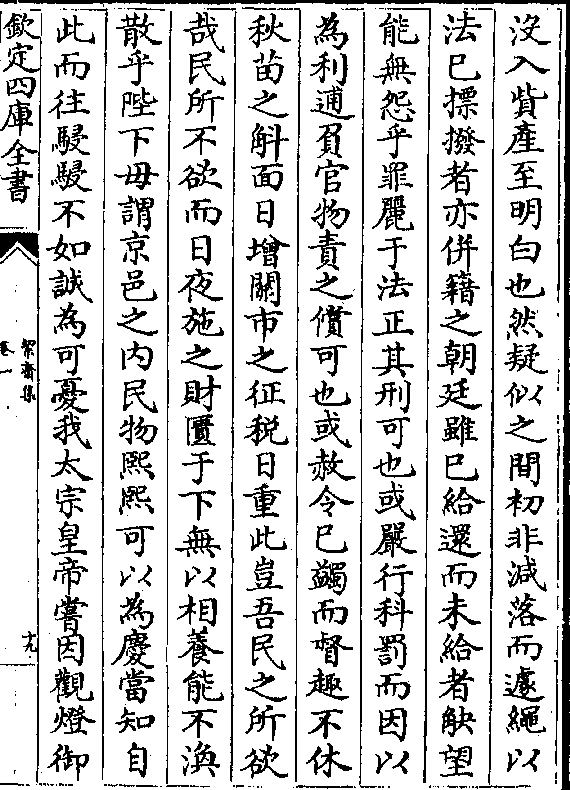 沒入貲產至明白也然疑似之間初非減落而遽繩以
法已摽撥者亦併籍之朝廷雖已給還而未給者觖望
能無怨乎罪麗于法正其刑可也或嚴行科罰而因以
為利逋負官物責之償可也或赦令已蠲而督趣不休
秋苗之斛面日增關市之征稅日重此豈吾民之所欲
哉民所不欲而日夜施之財匱于下無以相養能不渙
散乎陛下毋謂京邑之内民物熙熙可以為慶當知自
此而往駸駸不如誠為可憂我太宗皇帝嘗因觀燈御
欽定四庫全書
絜齋集
卷一
十九